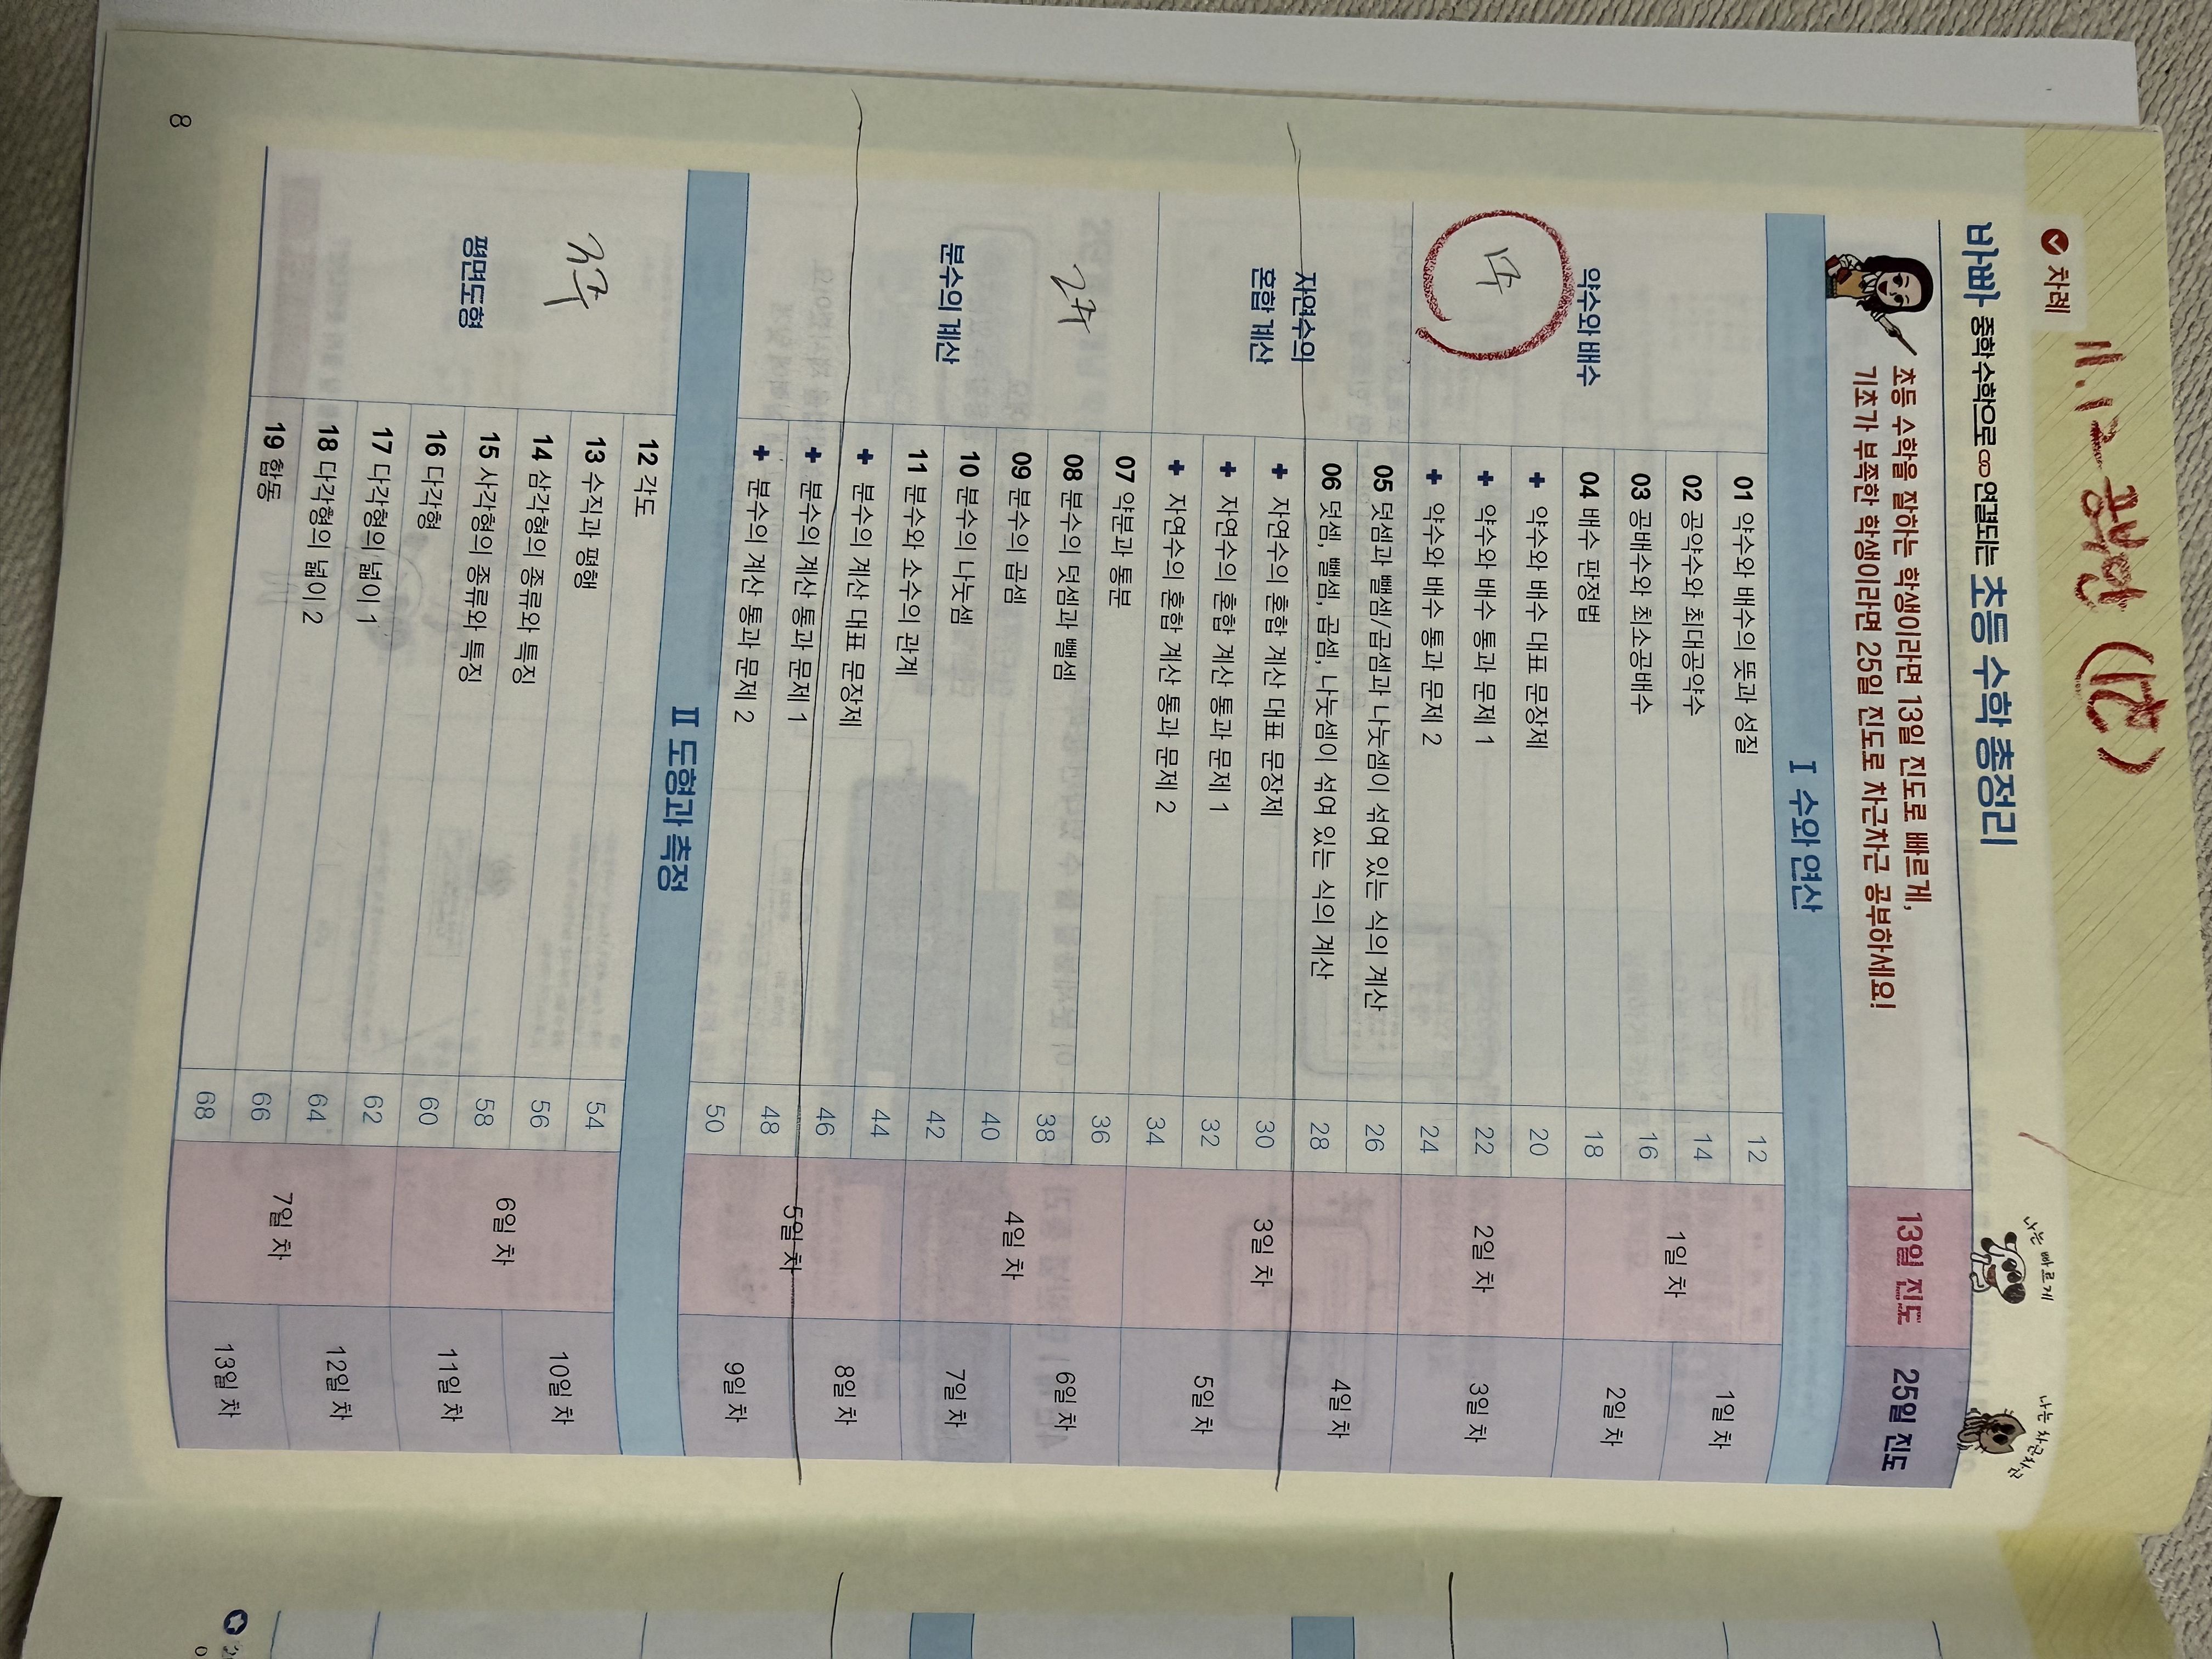 11. 12
차례
바빠 중학 수학으로 연결되는 초등 수학 총정리
나는 빠르게
나는 차근차근
초등 수학을 잘하는 학생이라면 13일 진도로 빠르게,
기초가 부족한 학생이라면 25일 진도로 차근차근 공부하세요!
13일 진도 25일 진도
I 수와 연산
약수와 배수
01 약수와 배수의 뜻과 성질 12 1일 차 1일 차
02 공약수와 최대공약수 14
03 공배수와 최소공배수 16 2일 차
04 배수 판정법 18
+ 약수와 배수 대표 문장제 20 2일 차 3일 차
+ 약수와 배수 통과 문제 1 22
+ 약수와 배수 통과 문제 2 24
자연수의
혼합 계산
05 덧셈과 뺄셈/곱셈과 나눗셈이 섞여 있는 식의 계산 26 3일 차 4일 차
06 덧셈, 뺄셈, 곱셈, 나눗셈이 섞여 있는 식의 계산 28
+ 자연수의 혼합 계산 대표 문장제 30 5일 차
+ 자연수의 혼합 계산 통과 문제 1 32
+ 자연수의 혼합 계산 통과 문제 2 34
분수의 계산
2주
07 약분과 통분 36 4일 차 6일 차
08 분수의 덧셈과 뺄셈 38
09 분수의 곱셈 40 7일 차
10 분수의 나눗셈 42
11 분수와 소수의 관계 44 5일 차 8일 차
+ 분수의 계산 대표 문장제 46
+ 분수의 계산 통과 문제 1 48 9일 차
+ 분수의 계산 통과 문제 2 50
II 도형과 측정
평면도형
3주
12 각도 54 6일 차 10일 차
13 수직과 평행 56
14 삼각형의 종류와 특징 58 11일 차
15 사각형의 종류와 특징 60
16 다각형 62 7일 차 12일 차
17 다각형의 넓이 1 64
18 다각형의 넓이 2 66 13일 차
19 합동 68
8